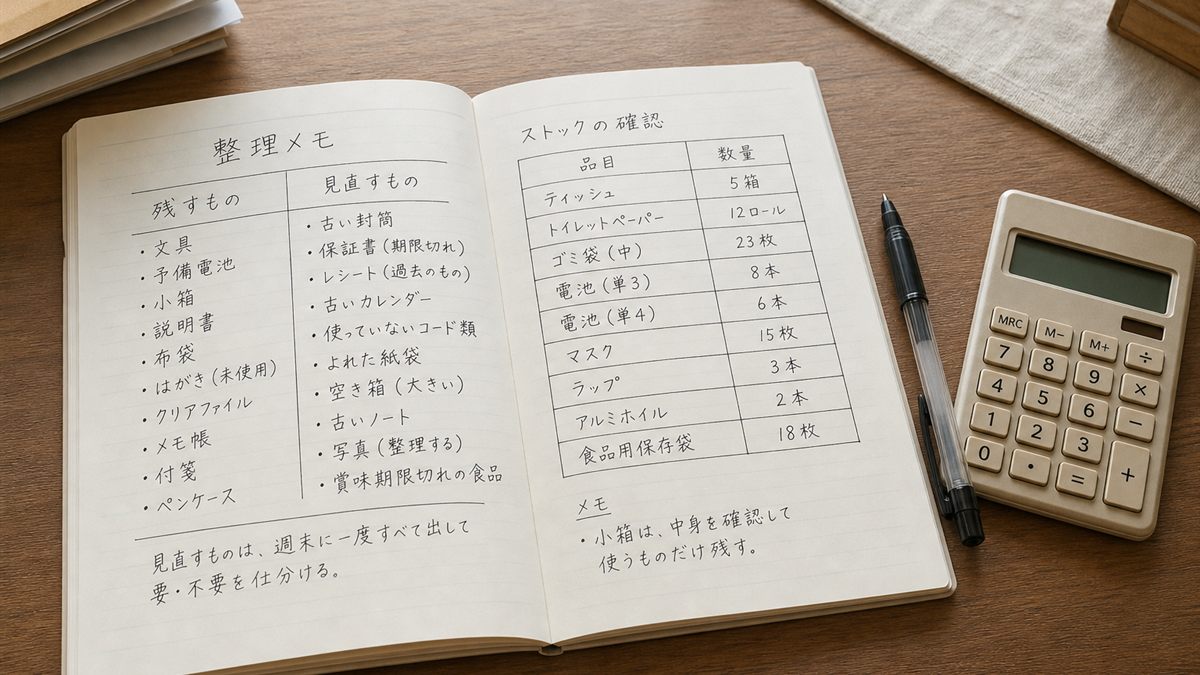 整理メモ
残すもの
・文具
・予備電池
・小箱
・説明書
・布袋
・はがき(未使用)
・クリアファイル
・メモ帳
・付箋
・ペンケース
見直すもの
・古い封筒
・保証書(期限切れ)
・レシート(過去のもの)
・古いカレンダー
・使っていないコード類
・よれた紙袋
・空き箱(大きい)
・古いノート
・写真(整理する)
・賞味期限切れの食品
見直すものは、週末に一度すべて出して
要・不要を仕分ける。
ストックの確認
品目 数量
ティッシュ 5箱
トイレットペーパー 12ロール
ゴミ袋(中) 23枚
電池(単3) 8本
電池(単4) 6本
マスク 15枚
ラップ 3本
アルミホイル 2本
食品用保存袋 18枚
メモ
・小箱は、中身を確認して
使うものだけ残す。
MRC M− M+ ÷
7 8 9 ×
4 5 6 −
1 2 3 +
0 · =